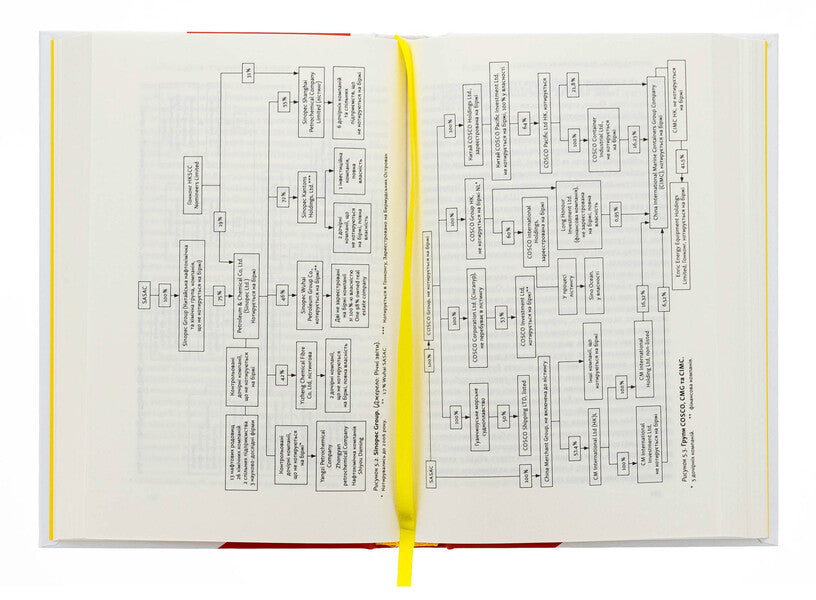 SASAC
100%
Sinopec Group (Китайська нафтохімічна
та хімічна група, компанія,
що не котирується на біржі)
Гонконг HKSCC
Nominees Limited
75%
19%
31%
13 нафтових родовищ
26 хімічних компаній
2 спільних підприємства
3 науково-дослідні фірми
Контрольовані
дочірні компанії,
що не котируються
на біржі
Petroleum & Chemical Co, Ltd.
(Sinopec Ltd.)
Котирується на біржі
42%
46%
72%
55%
Контрольовані
дочірні компанії,
що не котируються
на біржі*
Yizheng Chemical Fibre
Co, Ltd, лістингова
Sinopec Wuhai
Petroleum Group Co.,
котирується на біржі**
Sinopec Kantons
Holdings, Ltd.***
Sinopec Shanghai
Petrochemical Company
Limited (лістинг)
Yangzi Petrochemical
Company
Zhongyan
petrochemical Company
Нафтохімічна компанія
Shiyou Daming
2 дочірні компанії,
що не котируються
на біржі, повна власність
Дві не зареєстровані
на біржі компанії
зі 100%-ю власністю
One 98% owned real
estate company
2 дочірні компанії, що
не котируються
на біржі, повна
власність
1 інвестиційна
компанія,
повна
власність
6 дочірніх компаній
та спільних
підприємств, що
не котируються на біржі
Рисунок 5.2. Sinopec Group. (Джерело: Річні звіти).
* Котирувались до 2006 року. ** 17% Wuhai SASAC *** Котирується в Гонконгу, Зареєстровано на Бермудських Островах
SASAC
100%
COSCO Group, не котирується на біржі
100%
100%
100%
100%
100%
Гуанчжоуське морське
судноплавство
COSCO Corporation Ltd. (Сінгапур),
не перебуває в лістингу
COSCO Group HK,
не котирується на біржі NL*
Китай COSCO Holdings Ltd.,
зареєстрована на біржі
50%
53%
60%
Китай COSCO Pacific Investment Ltd.
не котирується на біржі, 100% у власності
COSCO Shipping LTD, listed
COSCO Investment Ltd.
котирується на біржі**
COSCO International
Holdings,
зареєстрована на біржі
64%
COSCO Pacific, Ltd HK, котирується
на біржі
China Merchant Group, не включена до лістингу
У процесі
лістингу
Long Honour
Investment Ltd.
(фінансова компанія),
не зареєстрована
на біржі, повна
власність
100%
21,8%
52,4%
Sino Ocean,
у власності
COSCO Container
Industrial Ltd.,
не котирується
на біржі
CM International Ltd (HK)),
Інші компанії, що
котируються
на біржі
0,95%
16,23%
100%
100%
16,32%
CM International
Investment Ltd.
CM International
Holding Ltd, non-listed
China International Marine Containers Group Company
(CIMC), котирується на біржі
6,52%
41,5%
Enric Energy Equipment Holdings
Limited, Гонконг, котирується на біржі
CIMC HK, не котирується
на біржі
Рисунок 5.3. Групи COSCO, CMG та CIMC.
* 5 дочірніх компаній. ** фінансова компанія.